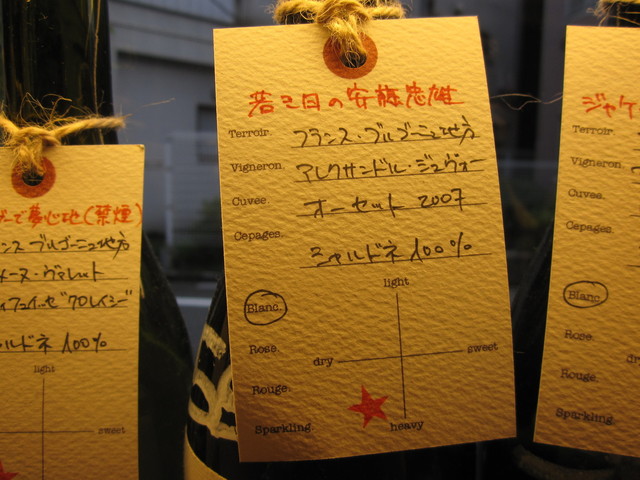 で夢心地(禁煙)
ンス・ブルゴーニュ地方
メーヌ・ヴァレット
イフュイッセ"クロレイシー"
ルドネ 100%
light
sweet
若き日の安藤忠雄
Terroir. フランス・ブルゴーニュ地方
Vigneron. アレクサンドル・ジュヴォー
Cuvee. オーセット 2007
Cepages. シャルドネ 100%
light
Blanc.
Rose.
dry
sweet
Rouge.
Sparkling.
heavy
ジャケ
Terroir.
Vigneron.
Cuvee.
Cepages.
Blanc.
Rose.
dry
Rouge.
Sparkling.